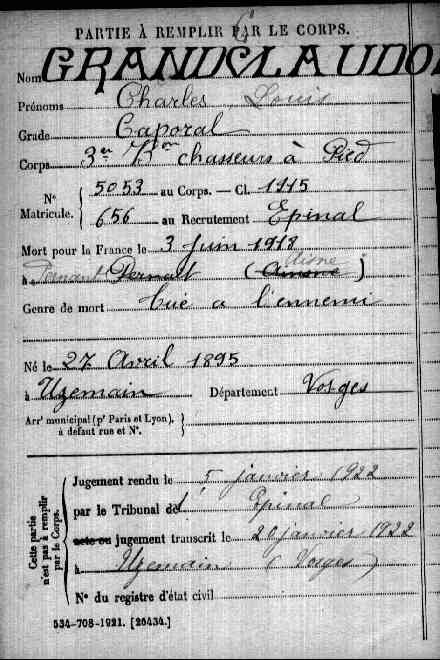 PARTIE À REMPLIR PAR LE CORPS.
Nom GRANDCLAUDO
Prénoms Charles Louis
Grade Caporal
Corps 3e Bon chasseurs à Pied
N° Matricule. { 5053 au Corps. — Cl. 1915
656 au Recrutement Epinal
Mort pour la France le 3 Juin 1918
à Pernant Pernant (Aisne)
Genre de mort Tué a l'ennemi
Né le 27 Avril 1895
à Uzemain Département Vosges
Arrt municipal (pr Paris et Lyon), à défaut rue et N°. }
Cette partie n'est pas à remplir par le Corps.
Jugement rendu le 5 janvier 1922
par le Tribunal de Epinal
acte ou jugement transcrit le 20 janvier 1922
à Uzemain (Vosges)
N° du registre d'état civil
534-708-1921. [26434.]